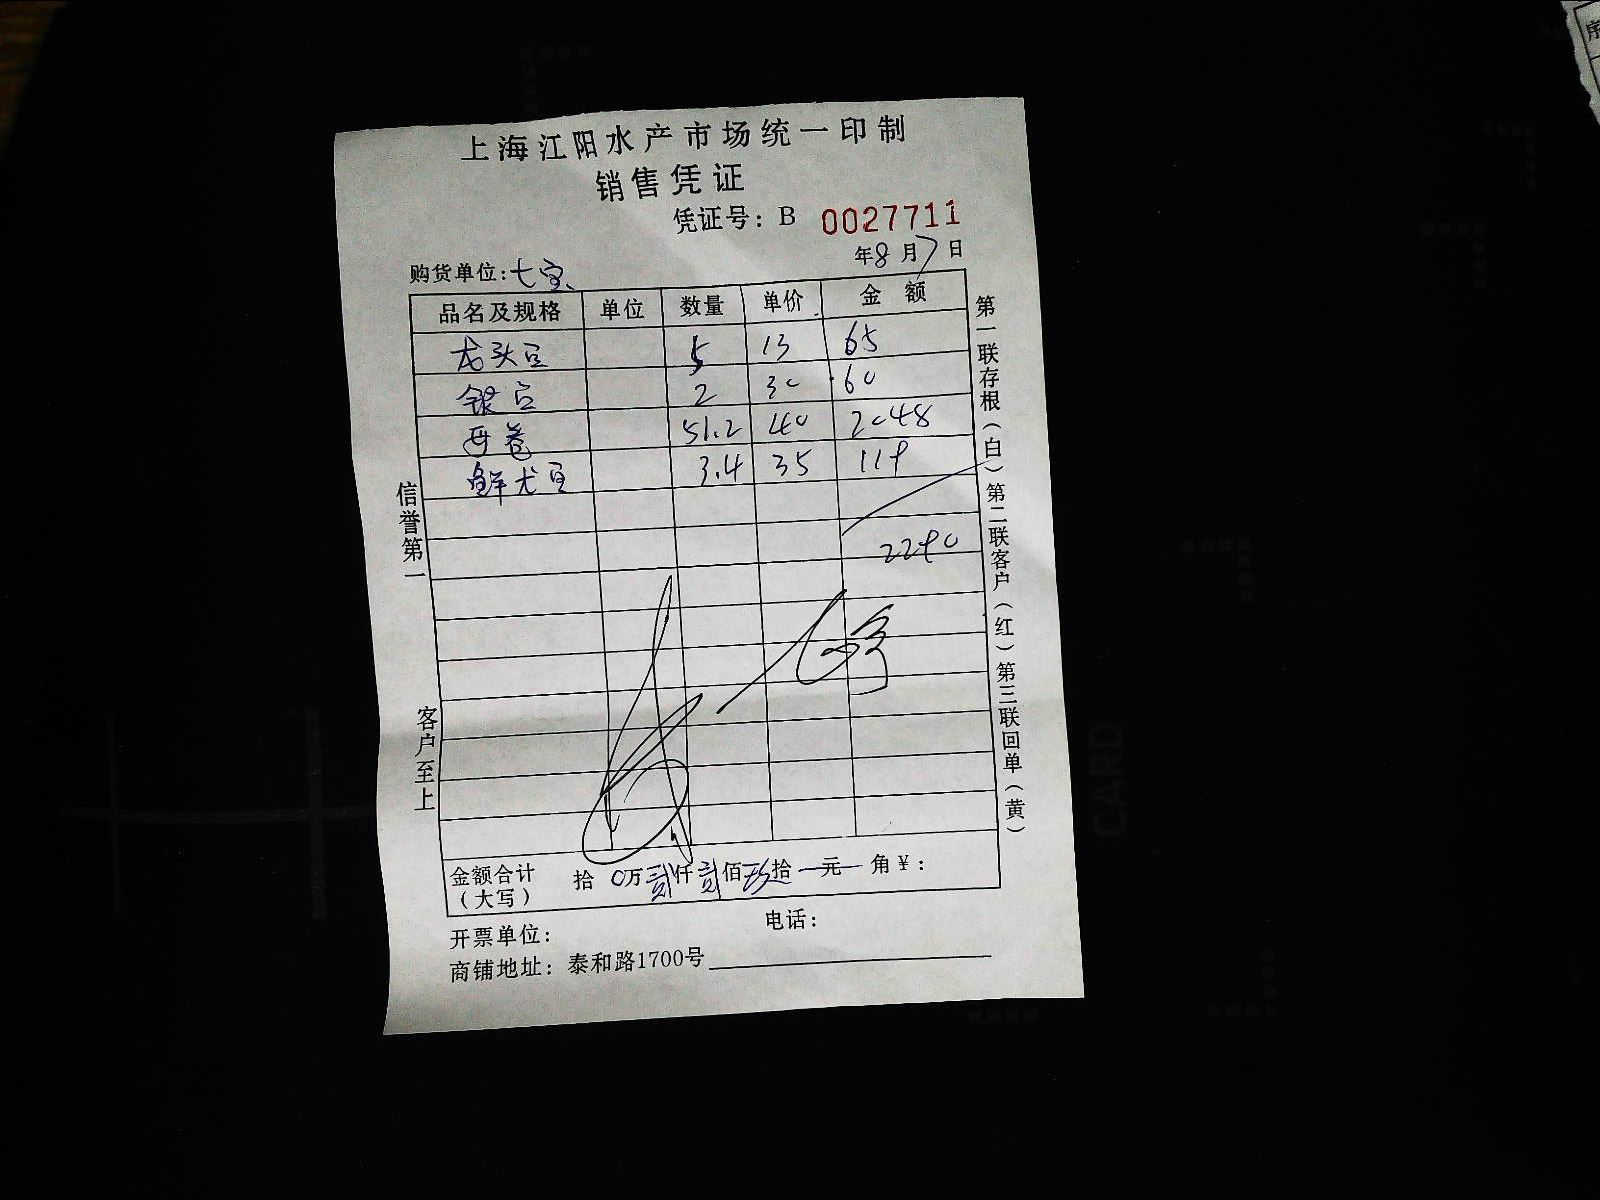 上海江阳水产市场统一印制
销售凭证
凭证号：B 0027711
年8月7日
购货单位：七宝
品名及规格 单位 数量 单价 金额
龙头豆 5 13 65
银豆 2 30 60
西卷 51.2 40 2048
鲜尤豆 3.4 35 119
2290
信誉第一
客户至上
第一联存根（白）第二联客户（红）第三联回单（黄）
金额合计（大写） 拾 0万贰仟贰佰玖拾 元 角 ¥：
开票单位： 电话：
商铺地址：泰和路1700号
CARD
序